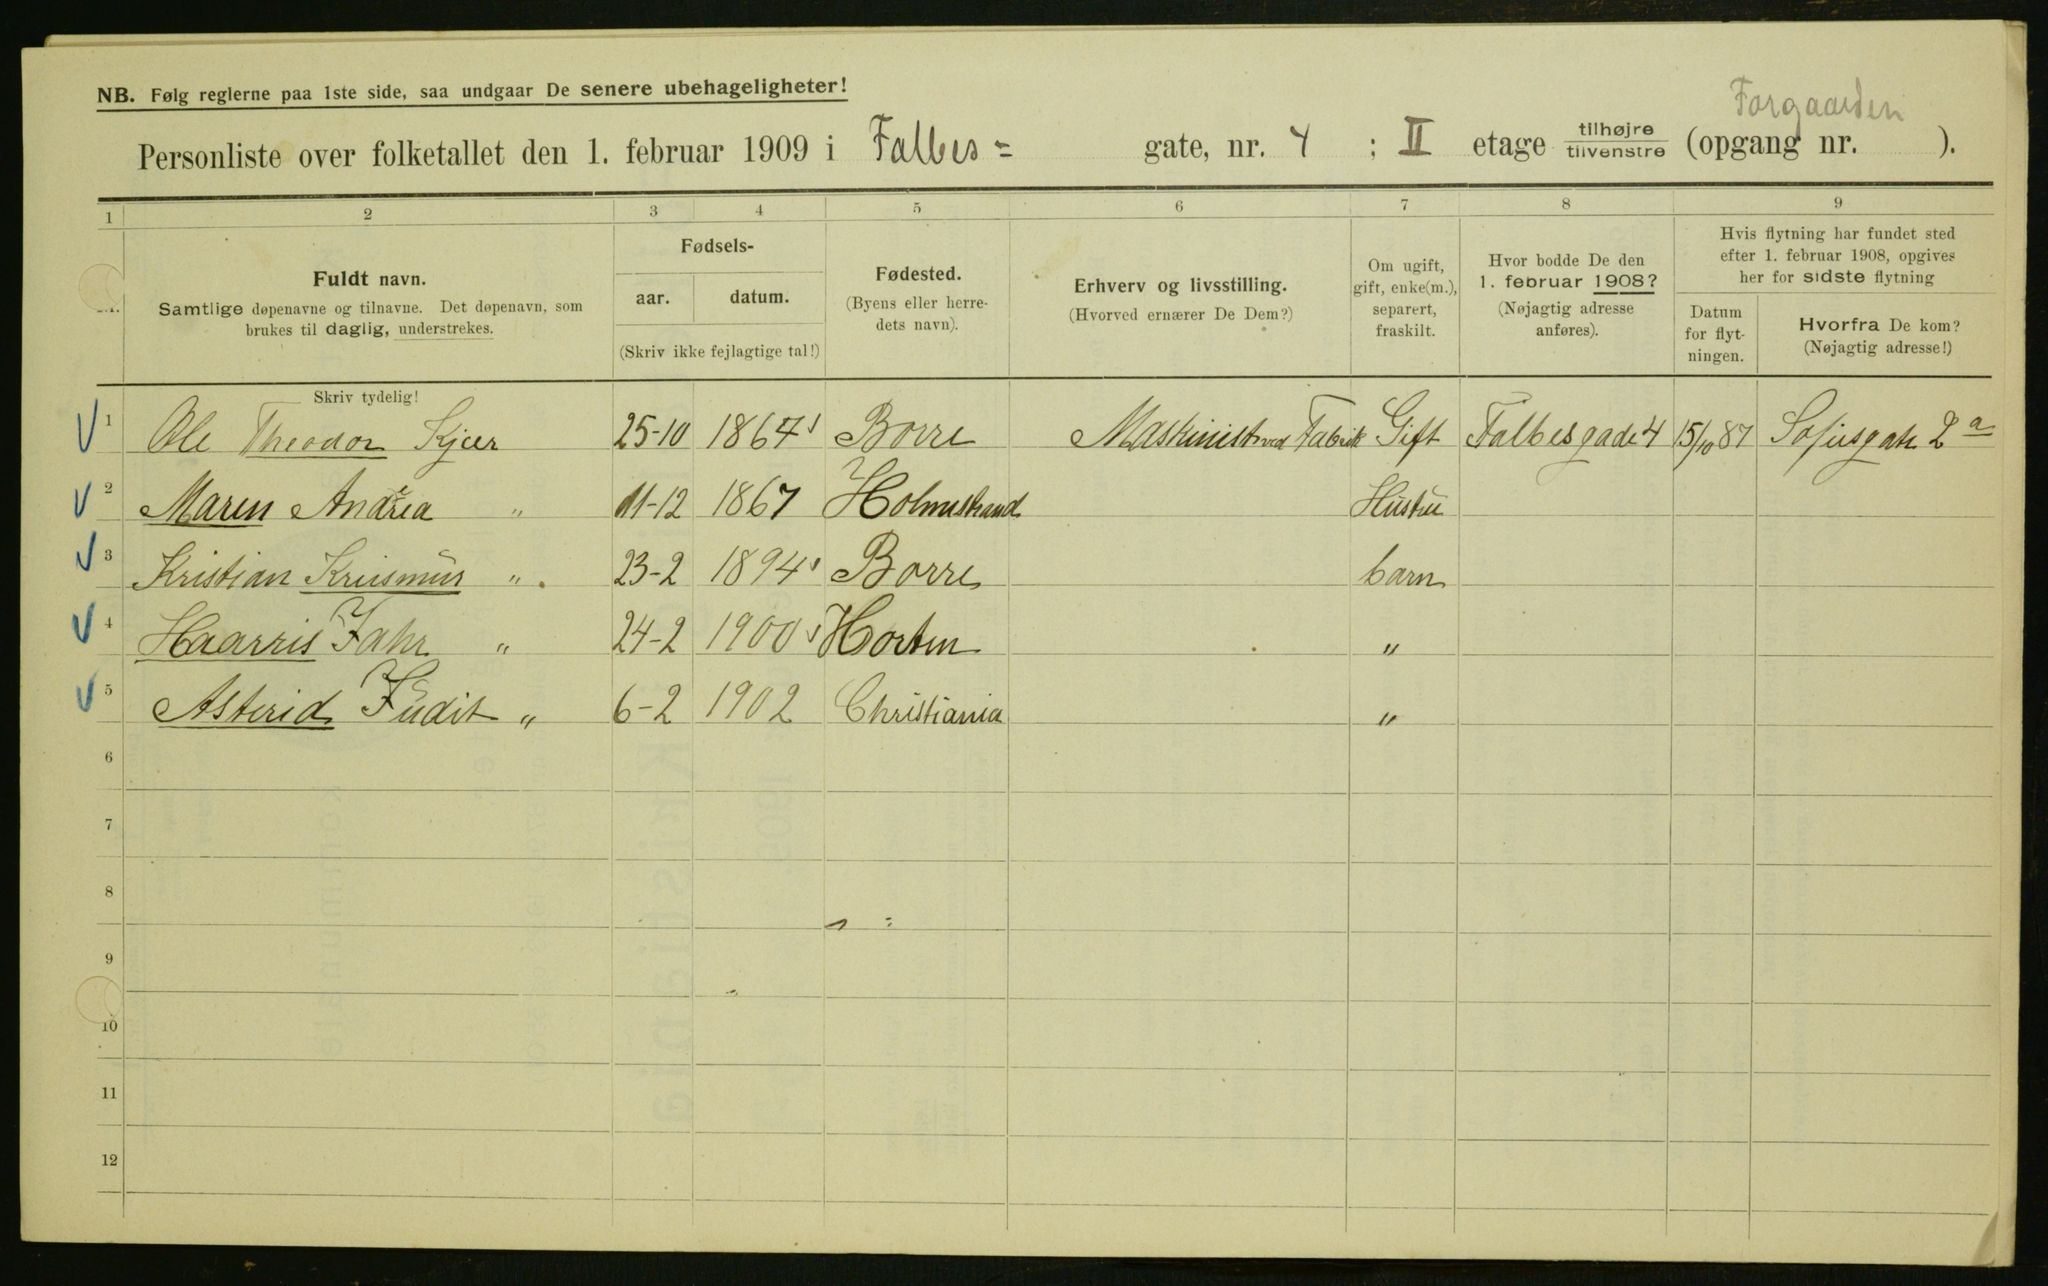 Forgaarden
NB. Følg reglerne paa 1ste side, saa undgaar De senere ubehageligheter!
Personliste over folketallet den 1. februar 1909 i Falbes= gate, nr. 4 ; II etage tilhøjre tilvenstre (opgang nr. ).
1 2 3 4 5 6 7 8 9
Fuldt navn.
Samtlige døpenavne og tilnavne. Det døpenavn, som
brukes til daglig, understrekes.
Fødsels-
aar. datum.
(Skriv ikke fejlagtige tal!)
Fødested.
(Byens eller herre-
dets navn).
Erhverv og livsstilling.
(Hvorved ernærer De Dem?)
Om ugift,
gift, enke(m.),
separert,
fraskilt.
Hvor bodde De den
1. februar 1908?
(Nøjagtig adresse
anføres).
Hvis flytning har fundet sted
efter 1. februar 1908, opgives
her for sidste flytning
Datum
for flyt-
ningen.
Hvorfra De kom?
(Nøjagtig adresse!)
Skriv tydelig!
1 Ole Theodor Kjær 25-10 1867 Borre Maskinist ved Fabrik Gift Falbesgade 4 15/10 87 Sofiesgate 2a
2 Maren Andrea " 11-12 1867 Holmestrand Hustru
3 Kristian " 23-2 1894 Borre barn
4 Haarris " 24-2 1900 Horten "
5 Asterid Judit " 6-2 1902 Christiania "
6
7
8
9
10
11
12